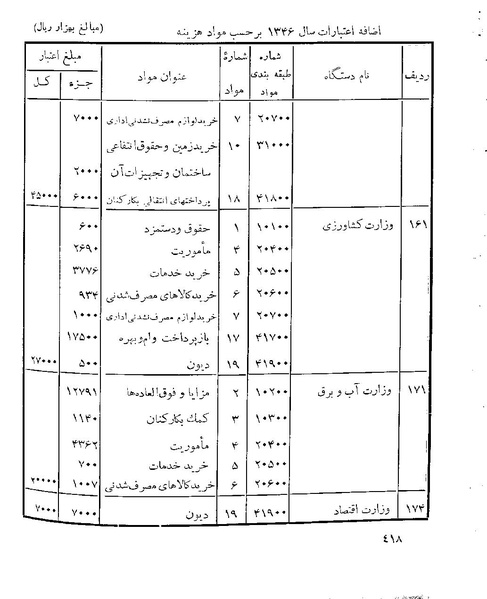 اضافه اعتبارات سال ۱۳۴۶ برحسب مواد هزینه (مبالغ بهزار ریال)
ردیف نام دستگاه شماره طبقه بندی مواد شمارهٔ مواد عنوان مواد مبلغ اعتبار جزء کل
۲۰۷۰۰ ۷ خریدلوازم مصرف نشدنی اداری ۷۰۰۰
۳۱۰۰۰ ۱۰ خریدزمین وحقوق انتفاعی
ساختمان و تجهیزات آن ۲۰۰۰
۴۱۸۰۰ ۱۸ پرداختهای انتقالی بکارکنان ۶۰۰۰ ۴۵۰۰۰
۱۶۱ وزارت کشاورزی ۱۰۱۰۰ ۱ حقوق ودستمزد ۶۰۰
۲۰۴۰۰ ۴ مأموریت ۲۶۹۰
۲۰۵۰۰ ۵ خرید خدمات ۳۷۷۶
۲۰۶۰۰ ۶ خریدکالاهای مصرف شدنی ۹۳۴
۲۰۷۰۰ ۷ خریدلوازم مصرف نشدنی اداری ۱۰۰۰
۴۱۷۰۰ ۱۷ بازپرداخت وام وبهره ۱۷۵۰۰
۴۱۹۰۰ ۱۹ دیون ۵۰۰ ۲۷۰۰۰
۱۷۱ وزارت آب و برق ۱۰۲۰۰ ۲ مزایا و فوق العاده‌ها ۱۲۷۹۱
۱۰۳۰۰ ۳ کمك بکارکنان ۱۱۴۰
۲۰۴۰۰ ۴ مأموریت ۴۳۶۲
۲۰۵۰۰ ۵ خرید خدمات ۷۰۰
۲۰۶۰۰ ۶ خریدکالاهای مصرف شدنی ۱۰۰۷ ۲۰۰۰۰
۱۷۴ وزارت اقتصاد ۴۱۹۰۰ ۱۹ دیون ۷۰۰۰ ۷۰۰۰
۴۱۸